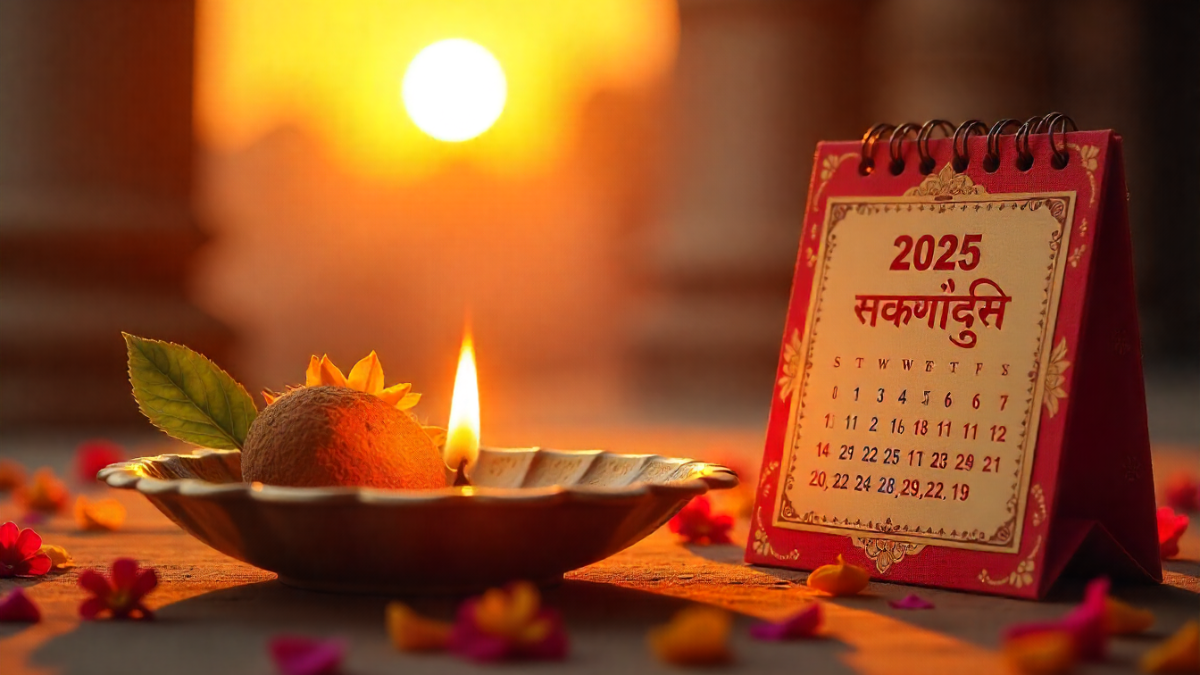 2025
सकर्णांदुसि
S T W W F T F S
8 1 3 4 5 6 6 7
11 11 2 16 18 11 11 12
14 29 22 25 11 28 29 21
20, 22 24 28, 29, 22. 19